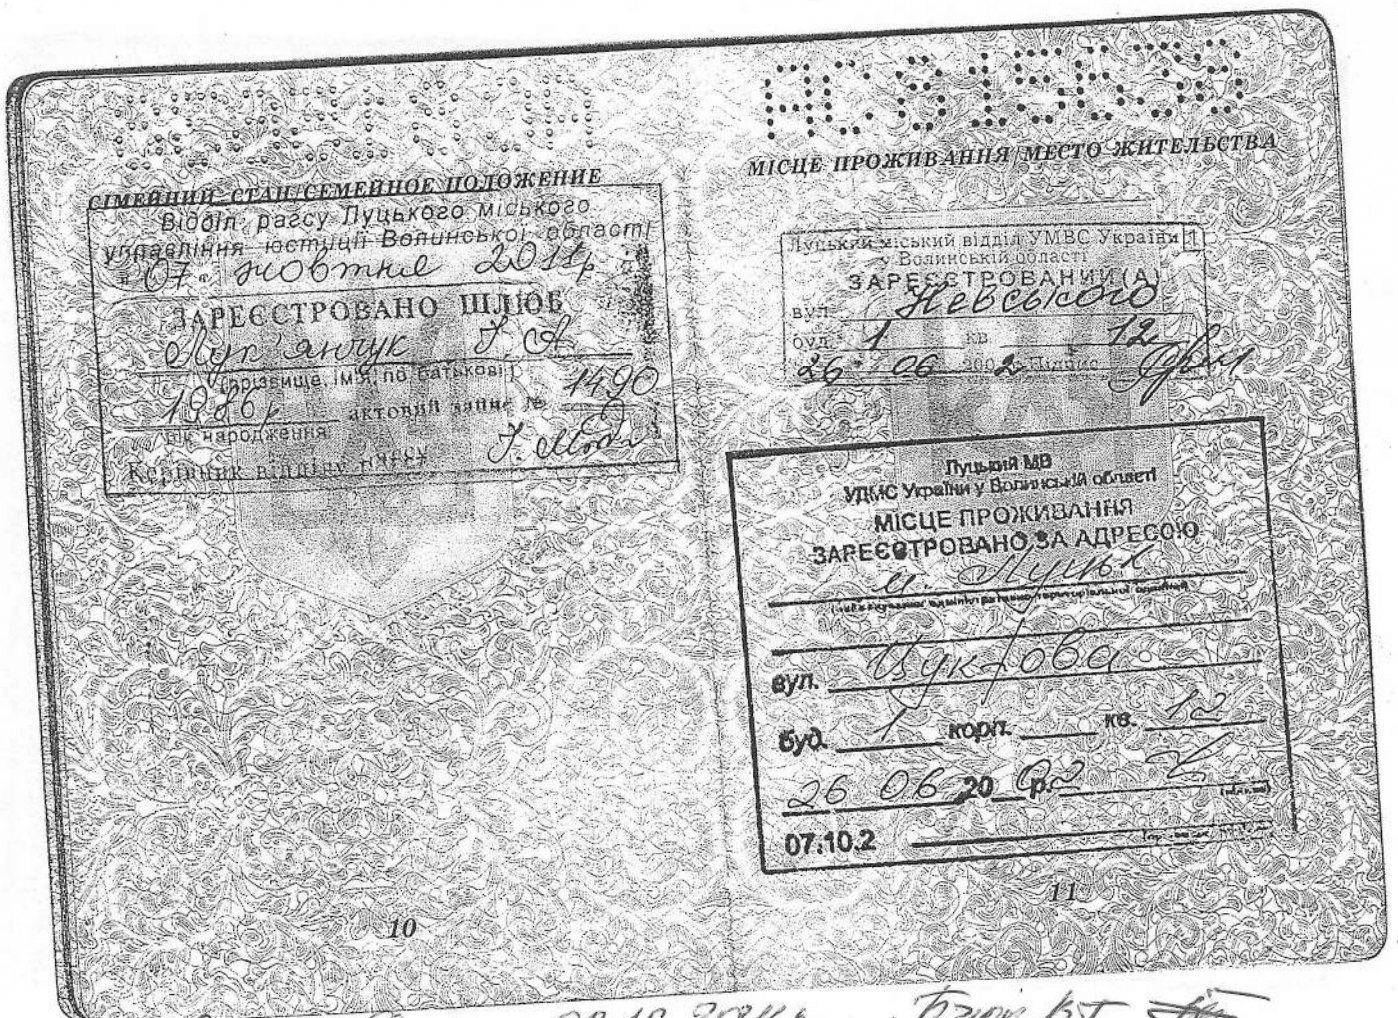 АС 815639
СІМЕЙНИЙ СТАН/СЕМЕЙНОЕ ПОЛОЖЕНИЕ
Відділ рагсу Луцького міського
управління юстиції Волинської області
"07" жовтня 2011р
ЗАРЕЄСТРОВАНО ШЛЮБ
Лук'янчук І А
(прізвище, ім'я, по батькові)
1986р актовий запис № 1490
рік народження
Керівник відділу рагсу
МІСЦЕ ПРОЖИВАННЯ/МЕСТО ЖИТЕЛЬСТВА
Луцький міський відділ УМВС України 1
у Волинській області
ЗАРЕЄСТРОВАНИЙ(А)
вул. Невського
буд. 1 кв. 12
26 06 2002 Підпис
Луцький МВ
УДМС України у Волинській області
МІСЦЕ ПРОЖИВАННЯ
ЗАРЕЄСТРОВАНО ЗА АДРЕСОЮ
м. Луцьк
вул.
буд. 1 корп. кв. 12
26 06 20 02 р.
(підпис)
07.10.2
10
11